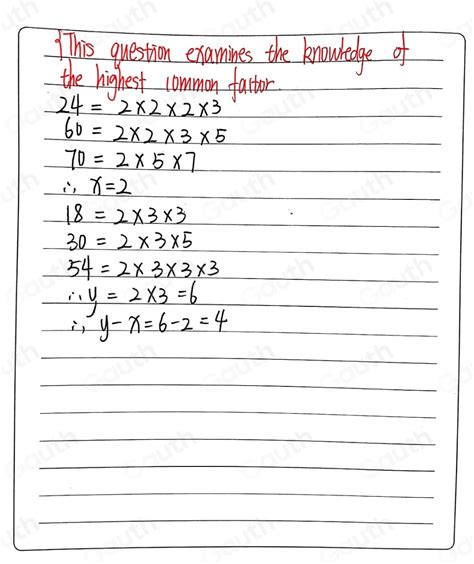 This question examines the knowledge of
the highest common factor.
24 = 2×2×2×3
60 = 2×2×3×5
70 = 2×5×7
∴ x=2
18 = 2×3×3
30 = 2×3×5
54 = 2×3×3×3
∴ y = 2×3=6
∴ y-x=6-2=4